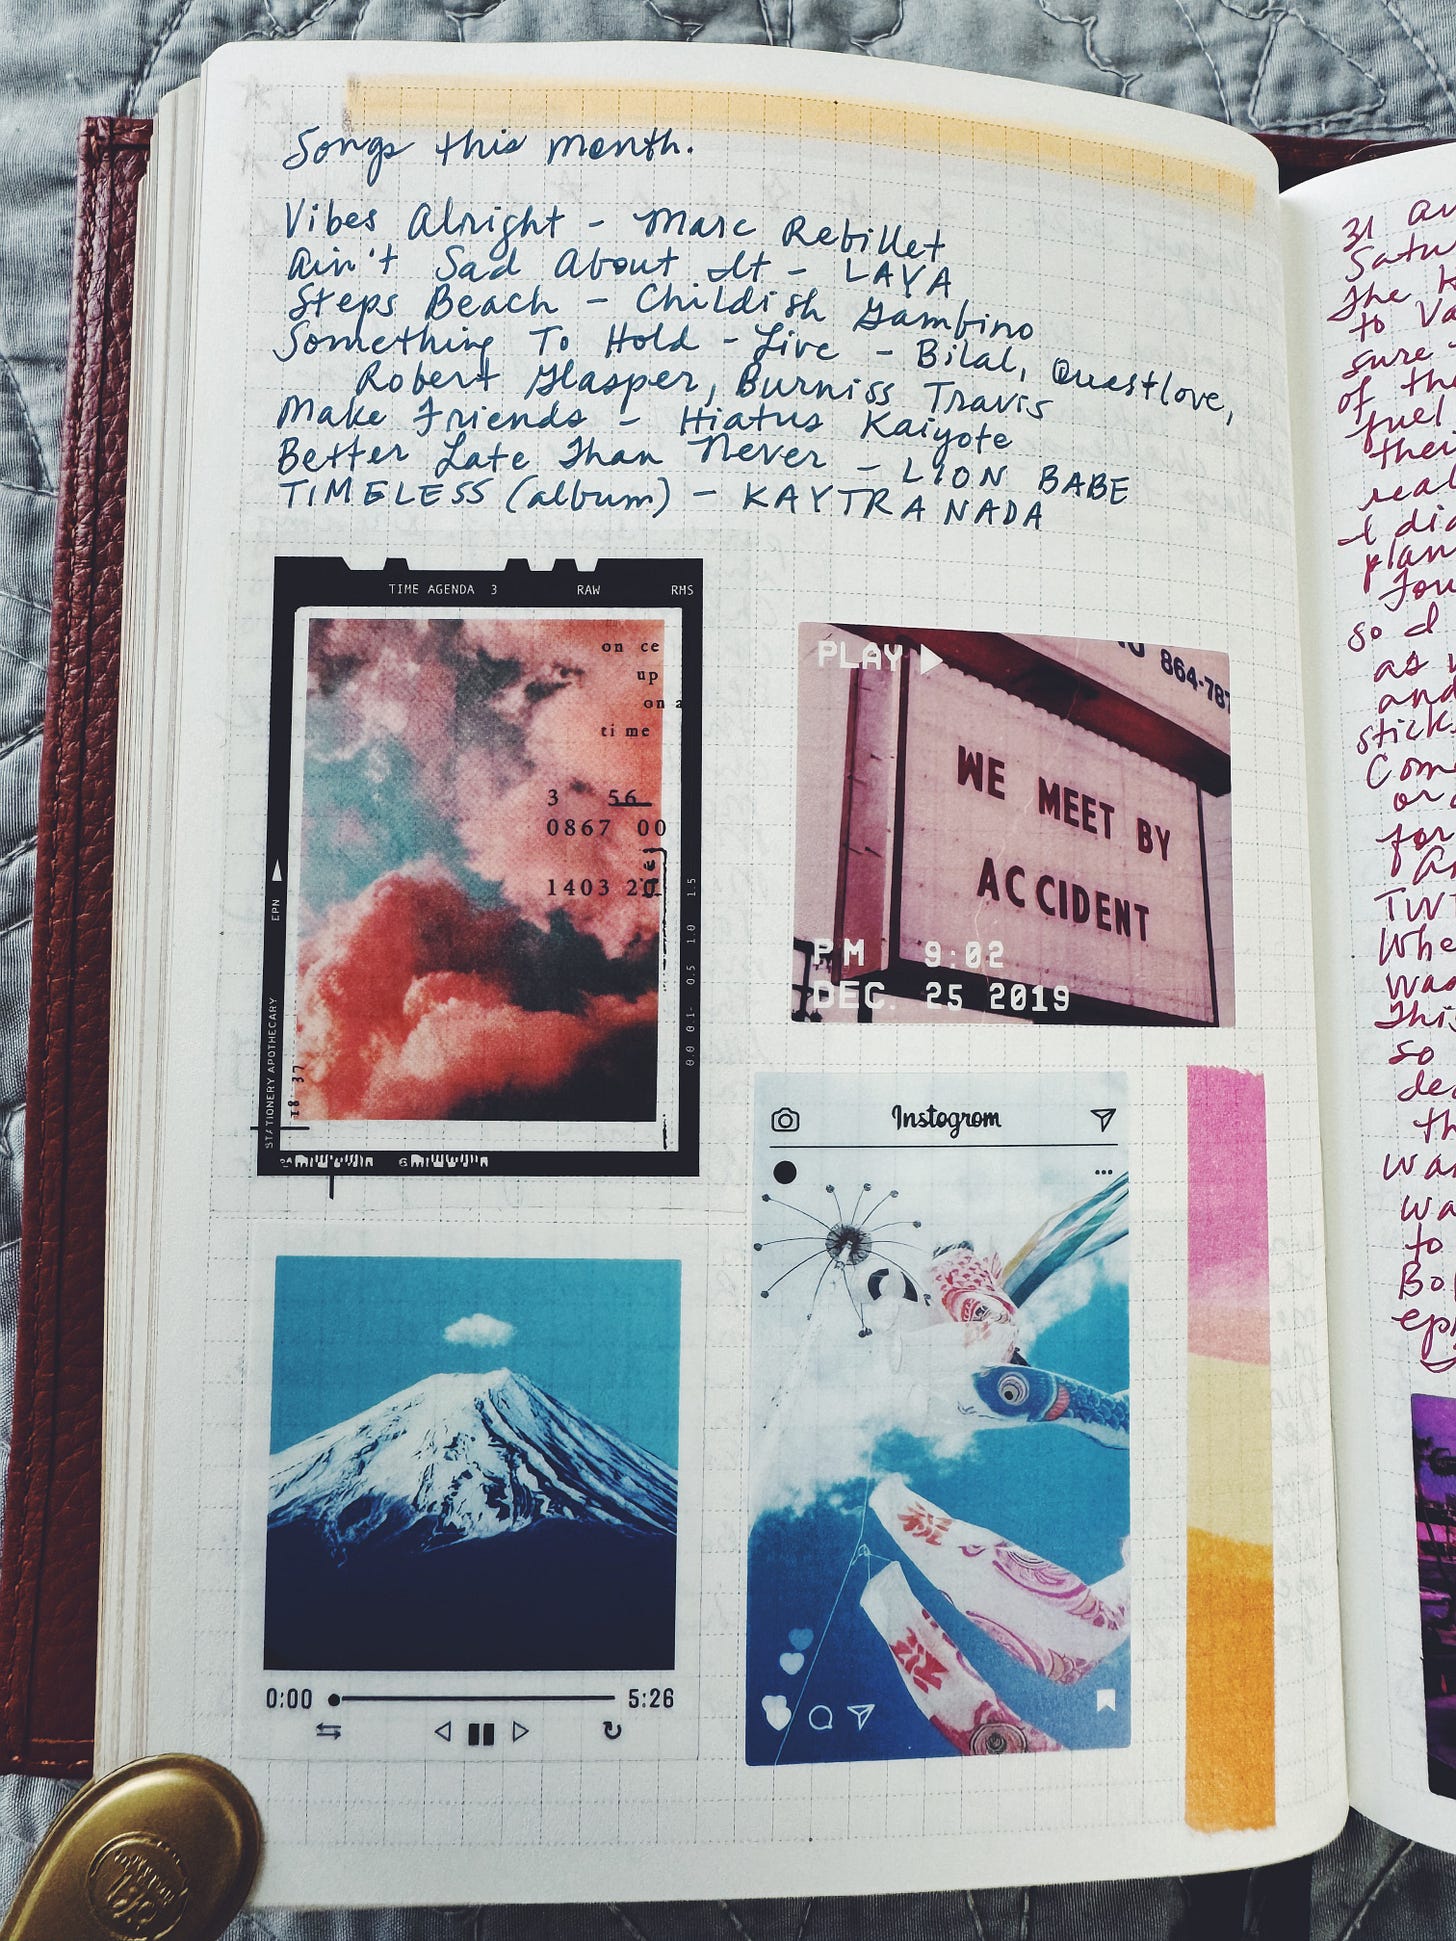 Songs this month.
Vibes Alright - Marc Rebillet
Ain't Sad About It - LAYA
Steps Beach - Childish Gambino
Something To Hold - Live - Bilal, Questlove,
Robert Glasper, Burniss Travis
Make Friends - Hiatus Kaiyote
Better Late Than Never - LION BABE
TIMELESS (album) - KAYTRANADA
TIME AGENDA 3 RAW RMS
on ce
up
on a
ti me
3 56
0867 00
1403 20
EPN
STATIONERY APOTHECARY
18 37
0.0 0.1- 0.5 1.0 1.5
PLAY
864-787
WE MEET BY
ACCIDENT
PM 9:02
DEC. 25 2019
Instogrom
0:00 5:26
31
The
to Va
sure
of the
fuel
their
real
I did
plan
so I
as
and
sticks
Com
or
for
TWI
Whe
was
This
so
de
th
wa
wa
to
Bo
ep